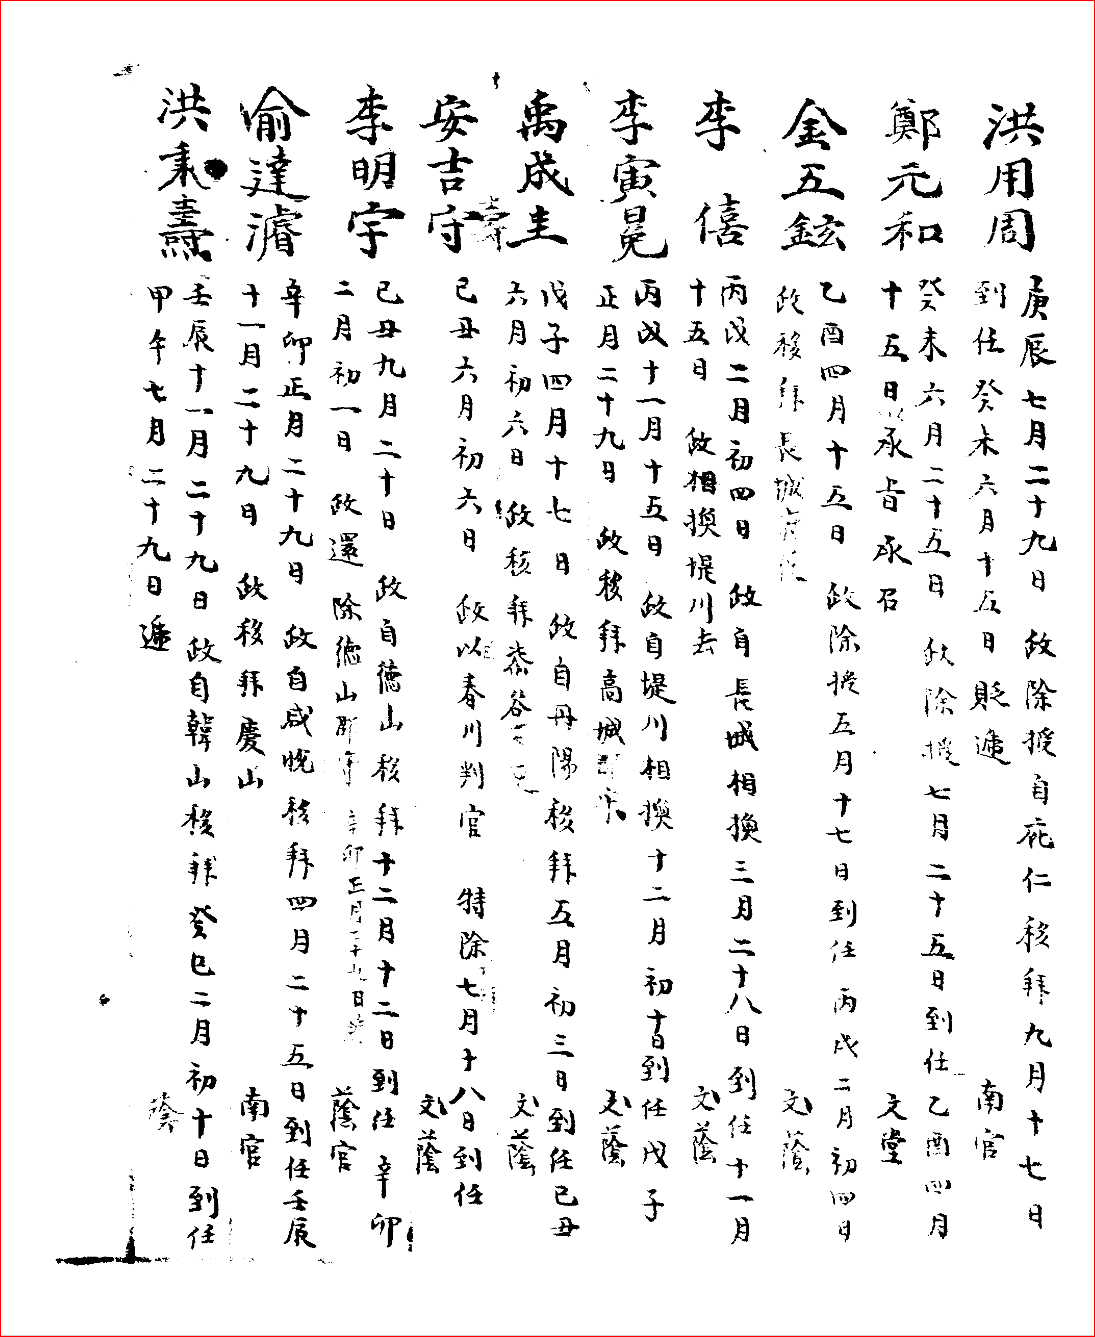 洪用周
庚辰七月二十九日　政除授自花仁移拜九月十七日
到任癸未六月十五日貶遞　南官
鄭元和
癸未六月二十五日　政除授七月二十五日到任乙酉四月
十五日承旨承召　文堂
金五鉉
乙酉四月十五日　政除授五月十七日到任丙戌二月初四日
政移拜長城　文蔭
李僖
丙戌二月初四日　政自長城相換三月二十八日到任十一月
十五日　政相換堤川去　文蔭
李寅冕
丙戌十一月十五日　政自堤川相換十二月初十日到任戊子
正月二十九日　政移拜高城郡守　文蔭
禹成圭
戊子四月十七日　政自丹陽移拜五月初三日到任己丑
六月初六日　政移拜桼谷　文蔭
安吉守
壽
己丑六月初六日　政以春川判官　特除七月十八日到任
文蔭
李明宇
己丑九月二十日　政自德山移拜十二月十二日到任辛卯
二月初一日　政還除德山郡守　辛卯正月二十九日　蔭官
俞達濬
辛卯正月二十九日　政自咸悅移拜四月二十五日到任壬辰
十一月二十九日　政移拜慶山　南官
洪秉燾
壬辰十一月二十九日政自韓山移拜癸巳二月初十日到任
甲午七月二十九日遞　蔭